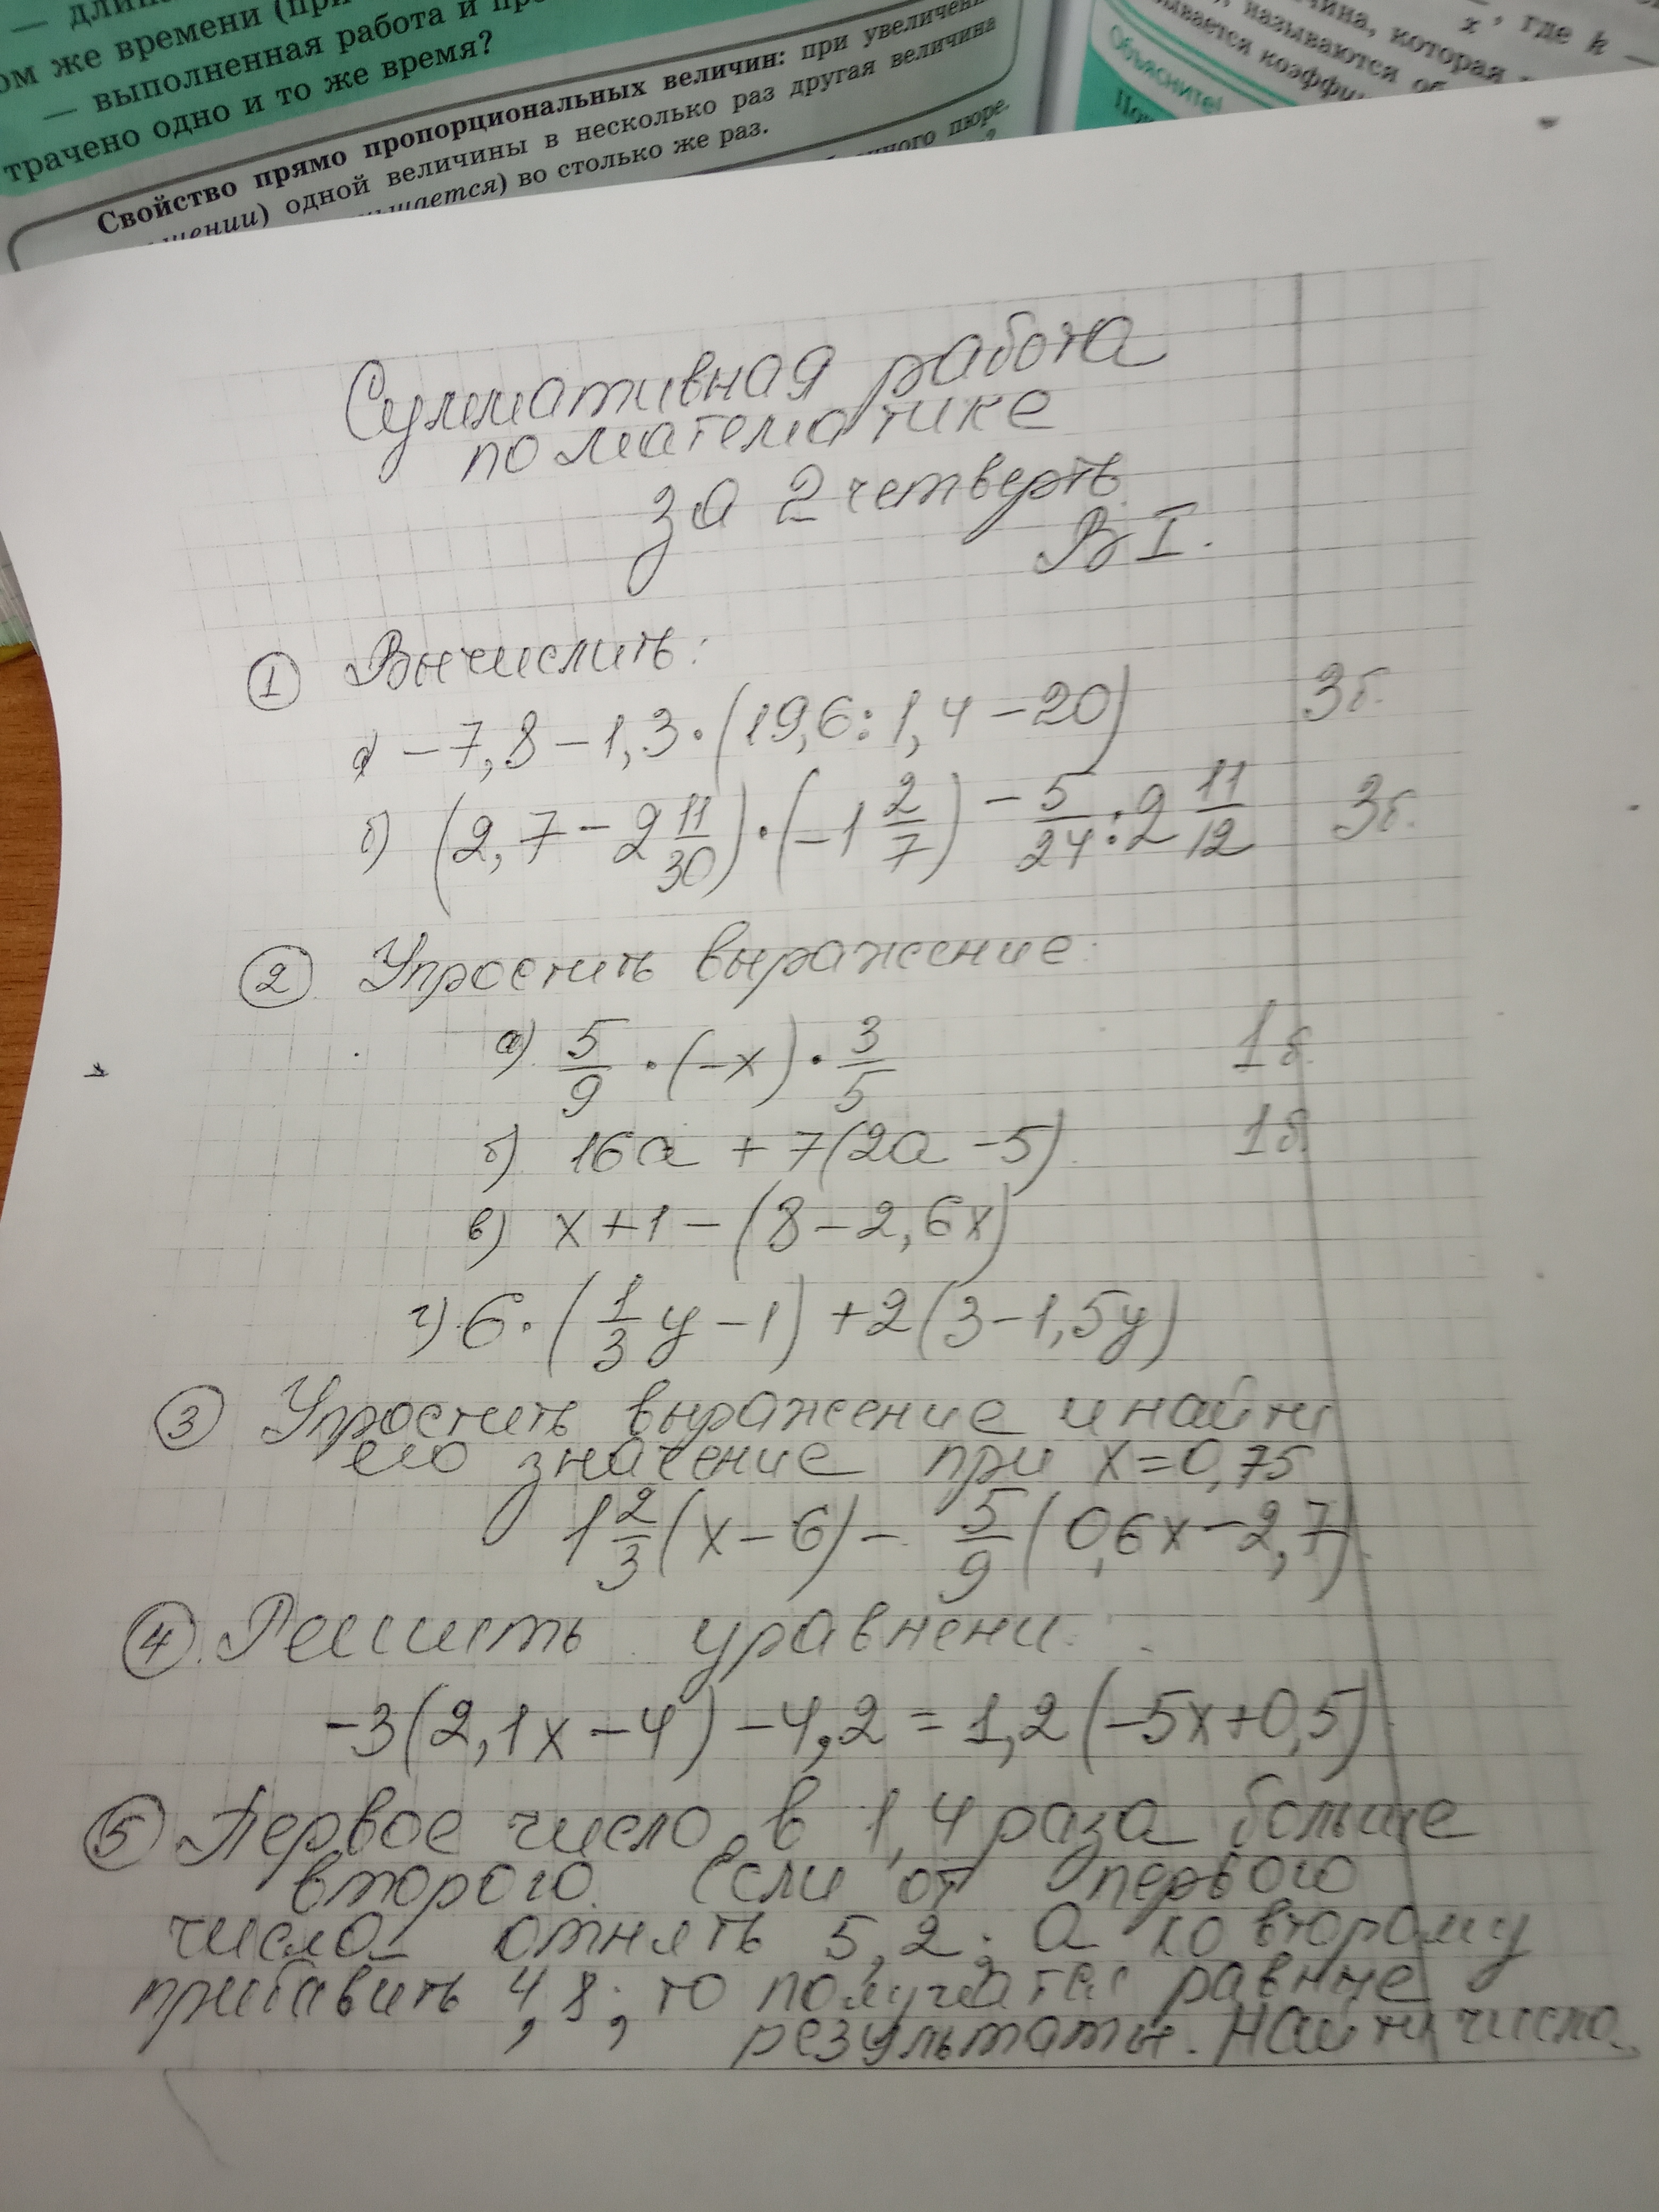 — дли
ом же времени (при
— выполненная работа и пр
трачено одно и то же время?
Свойство прямо пропорциональных величин: при увеличени
шении) одной величины в несколько раз другая величина
ньшается) во столько же раз.
ного пюре.
чина, которая
, где k —
x
, называются об
зывается коэффи
Объясните!
Суммативная работа
по математике
за 2 четверть
В I.
1 Вычислить:
а) −7,8 − 1,3·(19,6:1,4 − 20) 3б.
б) (2,7 − 2 11/30)·(−1 2/7) − 5/24 : 2 11/12 3б.
2 Упростить выражение:
а) 5/9 · (−x) · 3/5 1б.
б) 16а + 7(2а − 5) 1б.
в) x + 1 − (8 − 2,6x)
г) 6·(1/3 y − 1) + 2(3 − 1,5y)
3 Упростить выражение и найти
его значение при x = 0,75
1 2/3 (x − 6) − 5/9 (0,6x − 2,7)
4. Решить уравнени
−3(2,1x − 4) − 4,2 = 1,2(−5x + 0,5)
5 Первое число в 1,4 раза больше
второго. Если от первого
числа отнять 5,2; а ко второму
прибавить 4,8; то получатся равные
результаты. Найти числа